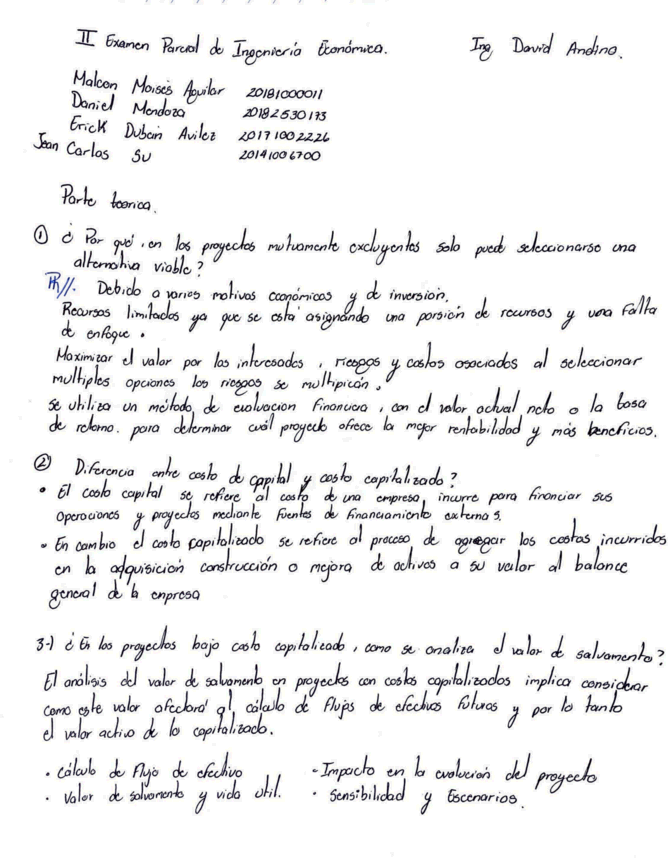 II Examen Parcial de Ingeniería Económica. Ing. David Andino.
Malcon Moisés Aguilar 20181000011
Daniel Mendoza 20182530173
Erick Duban Avilez 20171002226
Jean Carlos Su 20141006700
Parte teorica.
① ¿ Por qué, en los proyectos mutuamente excluyentes solo puede seleccionarse una
alternativa viable?
R//. Debido a varios motivos económicos y de inversión.
Recursos limitados ya que se esta asignando una porsión de recursos y una falta
de enfoque.
Maximizar el valor por los interesados, riesgos y costos asociados al seleccionar
multiples opciones los riesgos se multipican.
se utiliza un método de evaluacion financiera, con el valor actual neto o la tasa
de retorno. para determinar cuál proyecto ofrece la mejor rentabilidad y más beneficios.
② Diferencia entre costo de capital y costo capitalizado?
• El costo capital se refiere al costo de una empresa incurre para financiar sus
Operaciones y proyectos mediante fuentes de financiamiento externas.
• En cambio el costo capitalizado se refiere al proceso de agregar los costos incurridos
en la adquisición construcción o mejora de activos a su valor al balance
general de la enpresa
3-) ¿ En los proyectos bajo costo capitalizado, como se analiza el valor de salvamento?
El análisis del valor de salvamento en proyectos con costos capitalizados implica considerar
como este valor afectará al cálculo de flujos de efectivos futuros y por lo tanto
el valor activo de lo capitalizado.
• cálculo de flujo de efectivo • Impacto en la evaluación del proyecto
• Valor de salvamento y vida util. • Sensibilidad y Escenarios.